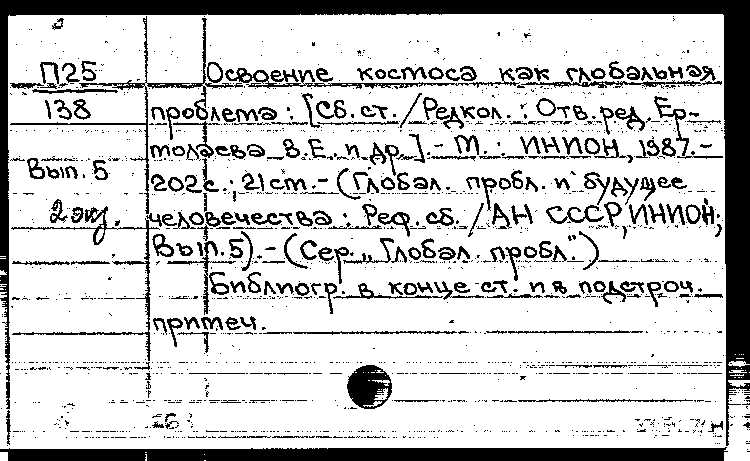 П25
138
Вып. 5
2 экз.
Освоение космоса как глобальная
проблема : [Сб. ст. / Редкол. : Отв. ред. Ер-
молаева В.Е. и др.]. - М. : ИНИОН, 1987. -
202с.; 21см. - (Глобал. пробл. и будущее
человечества : Реф. сб. / АН СССР, ИНИОН;
Вып. 5). - (Сер. „Глобал. пробл.")
Библиогр. в конце ст. и в подстроч.
примеч.